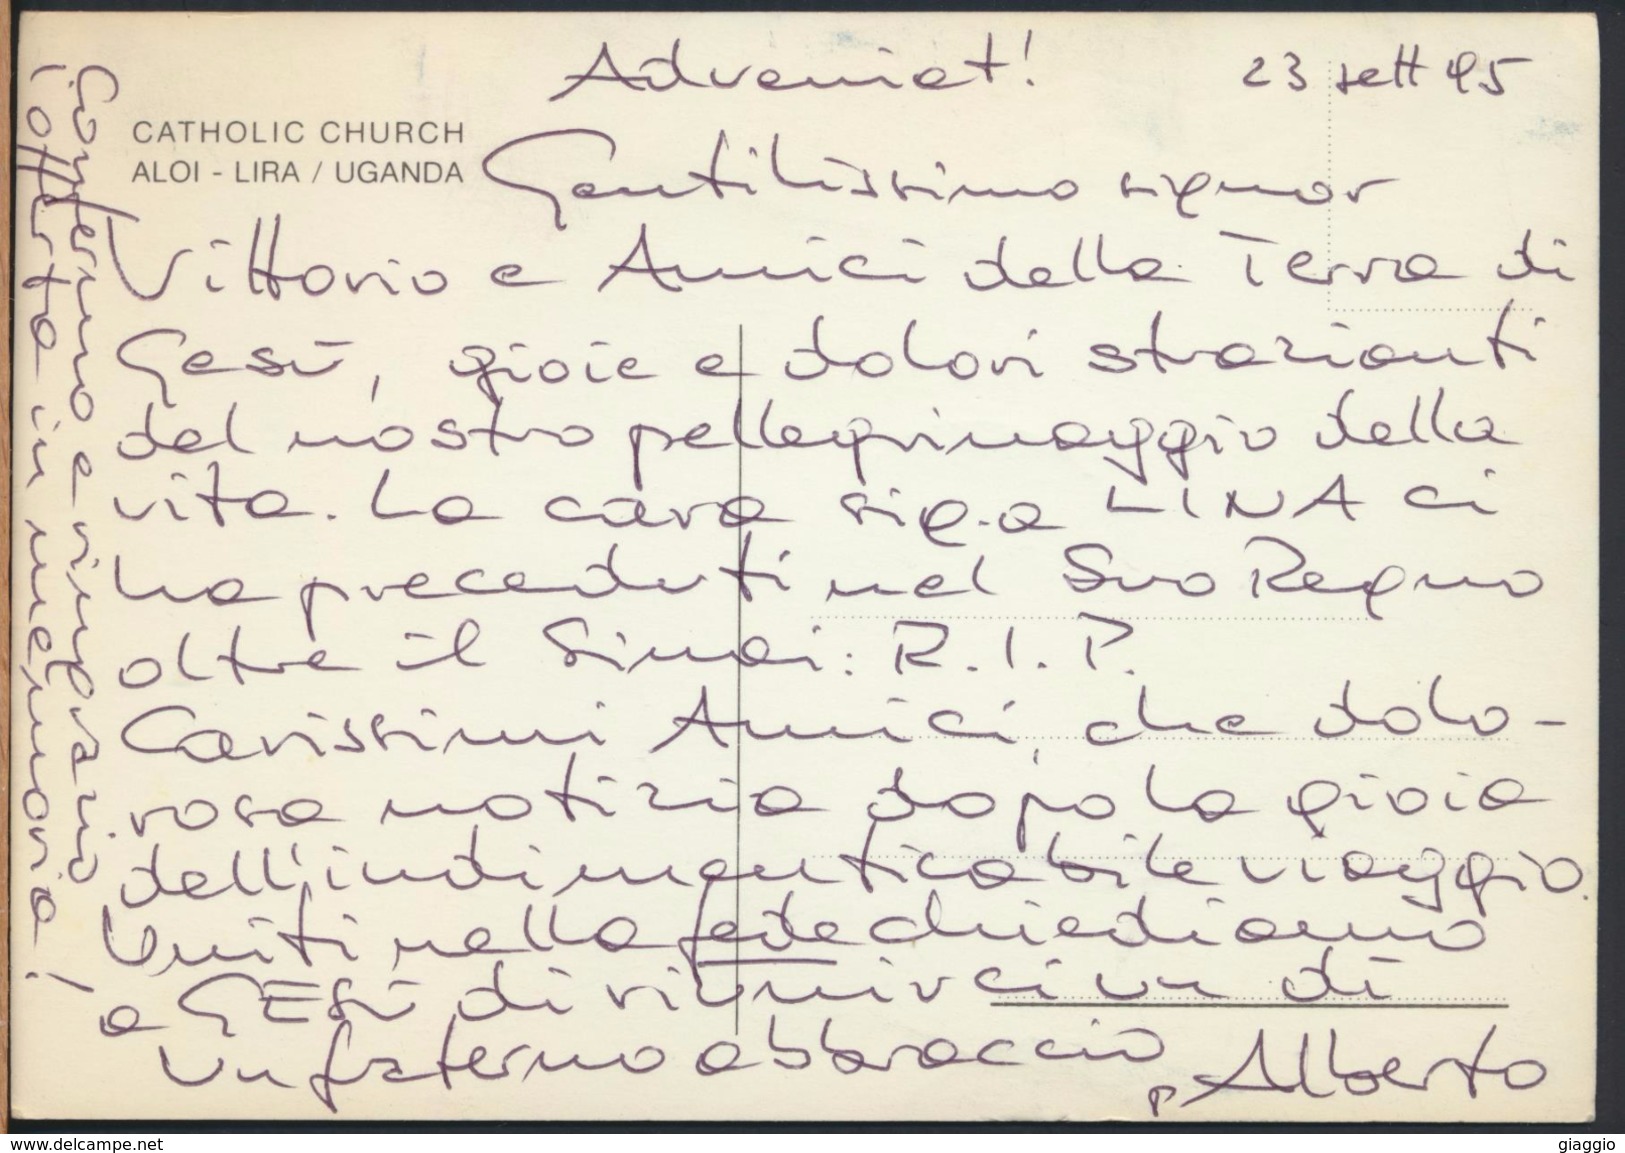 Adveniat!
23 sett 95
CATHOLIC CHURCH
ALOI - LIRA / UGANDA
Gentilissimo signor
Vittorio e Amici della Terra di
Gesù, gioie e dolori strazianti
del nostro pellegrinaggio della
vita. La cara sig.a LINA ci
ha preceduti nel Suo Regno
oltre il Sinai: R.I.P.
Carissimi Amici, che dolo-
rosa notizia dopo la gioia
dell'indimenticabile viaggio.
Uniti nella fede chiediamo
a GESÙ di riunirci un dì
Un fraterno abbraccio
p. Alberto
Confermo e ringrazio
l'offerta in memoria!
www.delcampe.net
giaggio